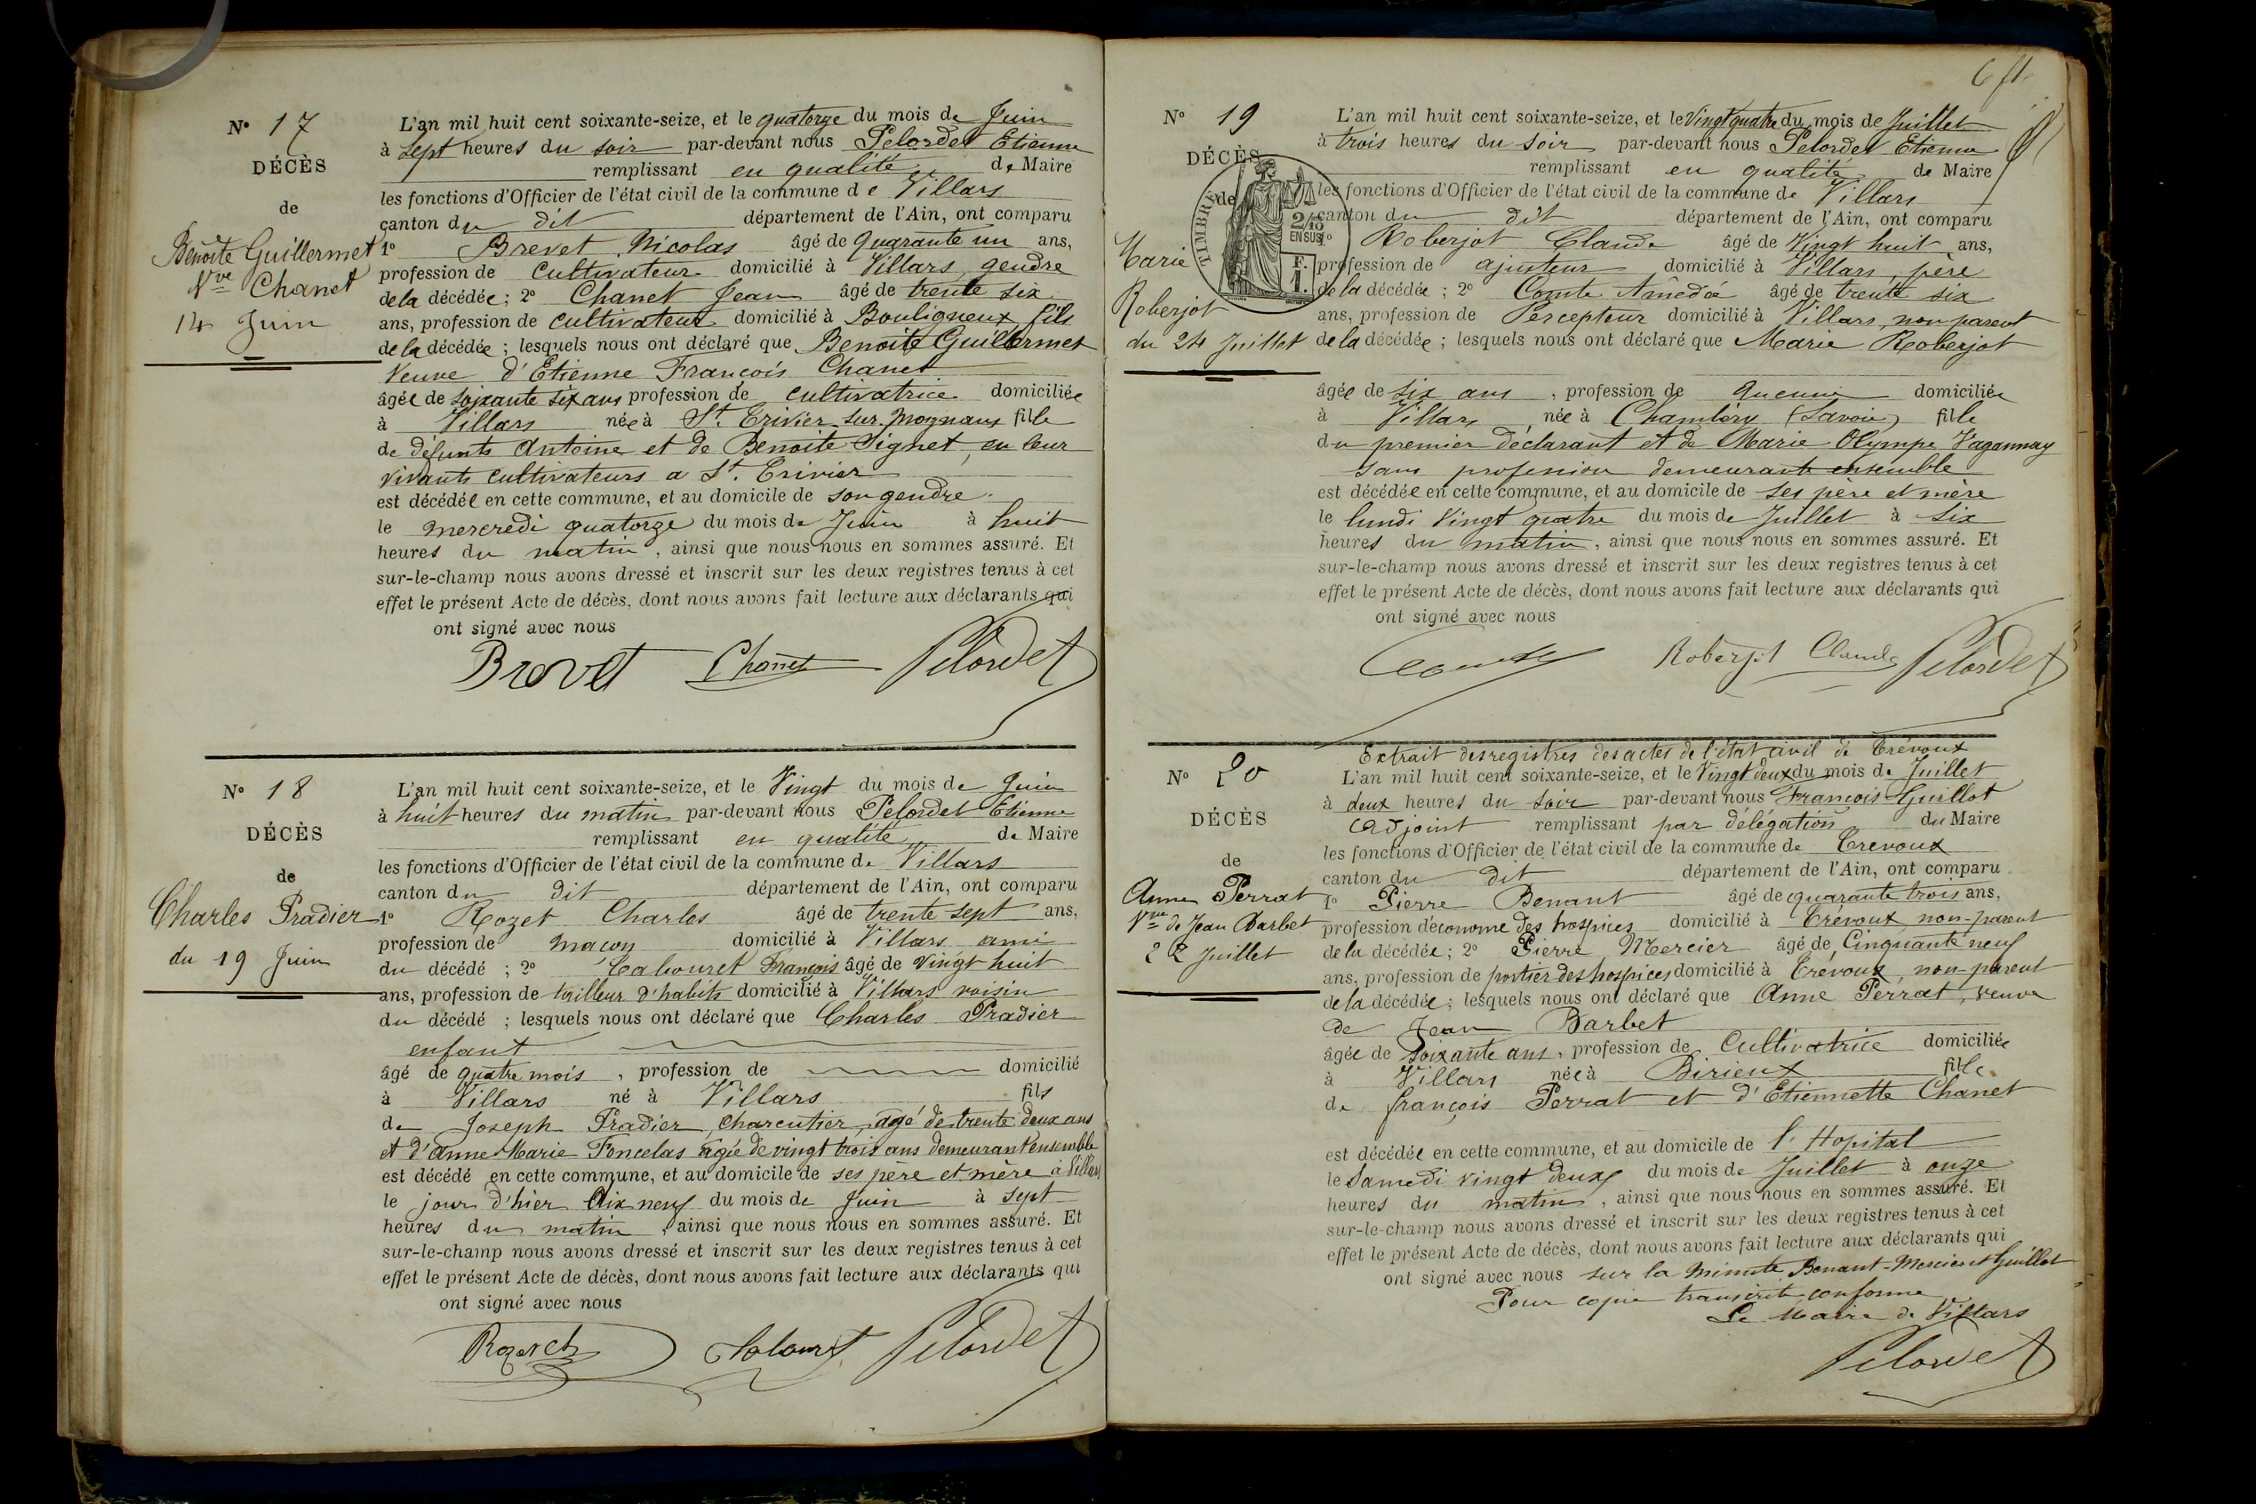 N° 17
DÉCÈS
de
Benoîte Guillermet
Vve Chanet
14 Juin
L'an mil huit cent soixante-seize, et le quatorze du mois de Juin
à sept heures du soir par-devant nous Pelordet Etienne
remplissant en qualité de Maire
les fonctions d'Officier de l'état civil de la commune de Villars
canton du dit département de l'Ain, ont comparu
1° Brevet Nicolas âgé de quarante un ans,
profession de cultivateur domicilié à Villars, gendre
de la décédée; 2° Chanet Jean âgé de trente six
ans, profession de cultivateur domicilié à Bouligneux fils
de la décédée; lesquels nous ont déclaré que Benoîte Guillermet
Veuve d'Etienne François Chanet
âgée de soixante six ans profession de cultivatrice domiciliée
à Villars née à St. Trivier sur Mognans fille
de défunts Antoine et de Benoite Signet, en leur
vivants cultivateurs a St. Trivier
est décédée en cette commune, et au domicile de son gendre
le mercredi quatorze du mois de Juin à huit
heures du matin, ainsi que nous nous en sommes assuré. Et
sur-le-champ nous avons dressé et inscrit sur les deux registres tenus à cet
effet le présent Acte de décès, dont nous avons fait lecture aux déclarants qui
ont signé avec nous
Brevet Chanet Pelordet
N° 18
DÉCÈS
de
Charles Pradier
du 19 Juin
L'an mil huit cent soixante-seize, et le Vingt du mois de Juin
à huit heures du matin par-devant nous Pelordet Etienne
remplissant en qualité de Maire
les fonctions d'Officier de l'état civil de la commune de Villars
canton du dit département de l'Ain, ont comparu
1° Rozet Charles âgé de trente sept ans,
profession de maçon domicilié à Villars ami
du décédé; 2° Cabouret François âgé de vingt huit
ans, profession de tailleur d'habits domicilié à Villars voisin
du décédé; lesquels nous ont déclaré que Charles Pradier
enfant
âgé de quatre mois, profession de domicilié
à Villars né à Villars fils
de Joseph Pradier, charcutier, agé de trente deux ans
et d'Anne Marie Foncelas agée de vingt trois ans demeurant ensemble
est décédé en cette commune, et au domicile de ses père et mère à Villars
le jour d'hier dix neuf du mois de Juin à sept
heures du matin, ainsi que nous nous en sommes assuré. Et
sur-le-champ nous avons dressé et inscrit sur les deux registres tenus à cet
effet le présent Acte de décès, dont nous avons fait lecture aux déclarants qui
ont signé avec nous
Pelordet
N° 19
DÉCÈS
de
Marie
Roberjot
du 24 Juillet
TIMBRE
2/10 EN SUS
F. 1.
L'an mil huit cent soixante-seize, et le Vingt quatre du mois de Juillet
à trois heures du soir par-devant nous Pelordet Etienne
remplissant en qualité de Maire
les fonctions d'Officier de l'état civil de la commune de Villars
canton du dit département de l'Ain, ont comparu
1° Roberjot Claude âgé de Vingt huit ans,
profession de ajusteur domicilié à Villars, père
de la décédée; 2° Comte Amédée âgé de trente six
ans, profession de Percepteur domicilié à Villars, non parent
de la décédée; lesquels nous ont déclaré que Marie Roberjot
âgée de six ans, profession de domiciliée
à Villars, née à Chambéry (Savoie) fille
du premier déclarant et de Marie Olympe Vagannay
sans profession demeurants ensemble
est décédée en cette commune, et au domicile de ses père et mère
le lundi vingt quatre du mois de Juillet à six
heures du matin, ainsi que nous nous en sommes assuré. Et
sur-le-champ nous avons dressé et inscrit sur les deux registres tenus à cet
effet le présent Acte de décès, dont nous avons fait lecture aux déclarants qui
ont signé avec nous
Comte Roberjot Claude Pelordet
N° 20
DÉCÈS
de
Anne Perrat
Vve de Jean Barbet
22 Juillet
Extrait des registres des actes de l'état civil de Trévoux
L'an mil huit cent soixante-seize, et le Vingt deux du mois de Juillet
à deux heures du soir par-devant nous François Guillot
adjoint remplissant par délégation du Maire
les fonctions d'Officier de l'état civil de la commune de Trevoux
canton du dit département de l'Ain, ont comparu
1° Pierre Benant âgé de quarante trois ans,
profession d'économe des hospices domicilié à Trévoux, non-parent
de la décédée; 2° Pierre Mercier âgé de cinquante neuf
ans, profession de portier des hospices domicilié à Trévoux, non-parent
de la décédée; lesquels nous ont déclaré que Anne Perrat, veuve
de Jean Barbet
âgée de soixante ans, profession de Cultivatrice domiciliée
à Villars née à Birieux fille
de françois Perrat et d'Etiennette Chanet
est décédée en cette commune, et au domicile de l'Hopital
le Samedi vingt deux du mois de Juillet à onze
heures du matin, ainsi que nous nous en sommes assuré. Et
sur-le-champ nous avons dressé et inscrit sur les deux registres tenus à cet
effet le présent Acte de décès, dont nous avons fait lecture aux déclarants qui
ont signé avec nous sur la minute Benant-Mercier et Guillot
Pour copie transcrite conforme
Le Maire de Villars
Pelordet